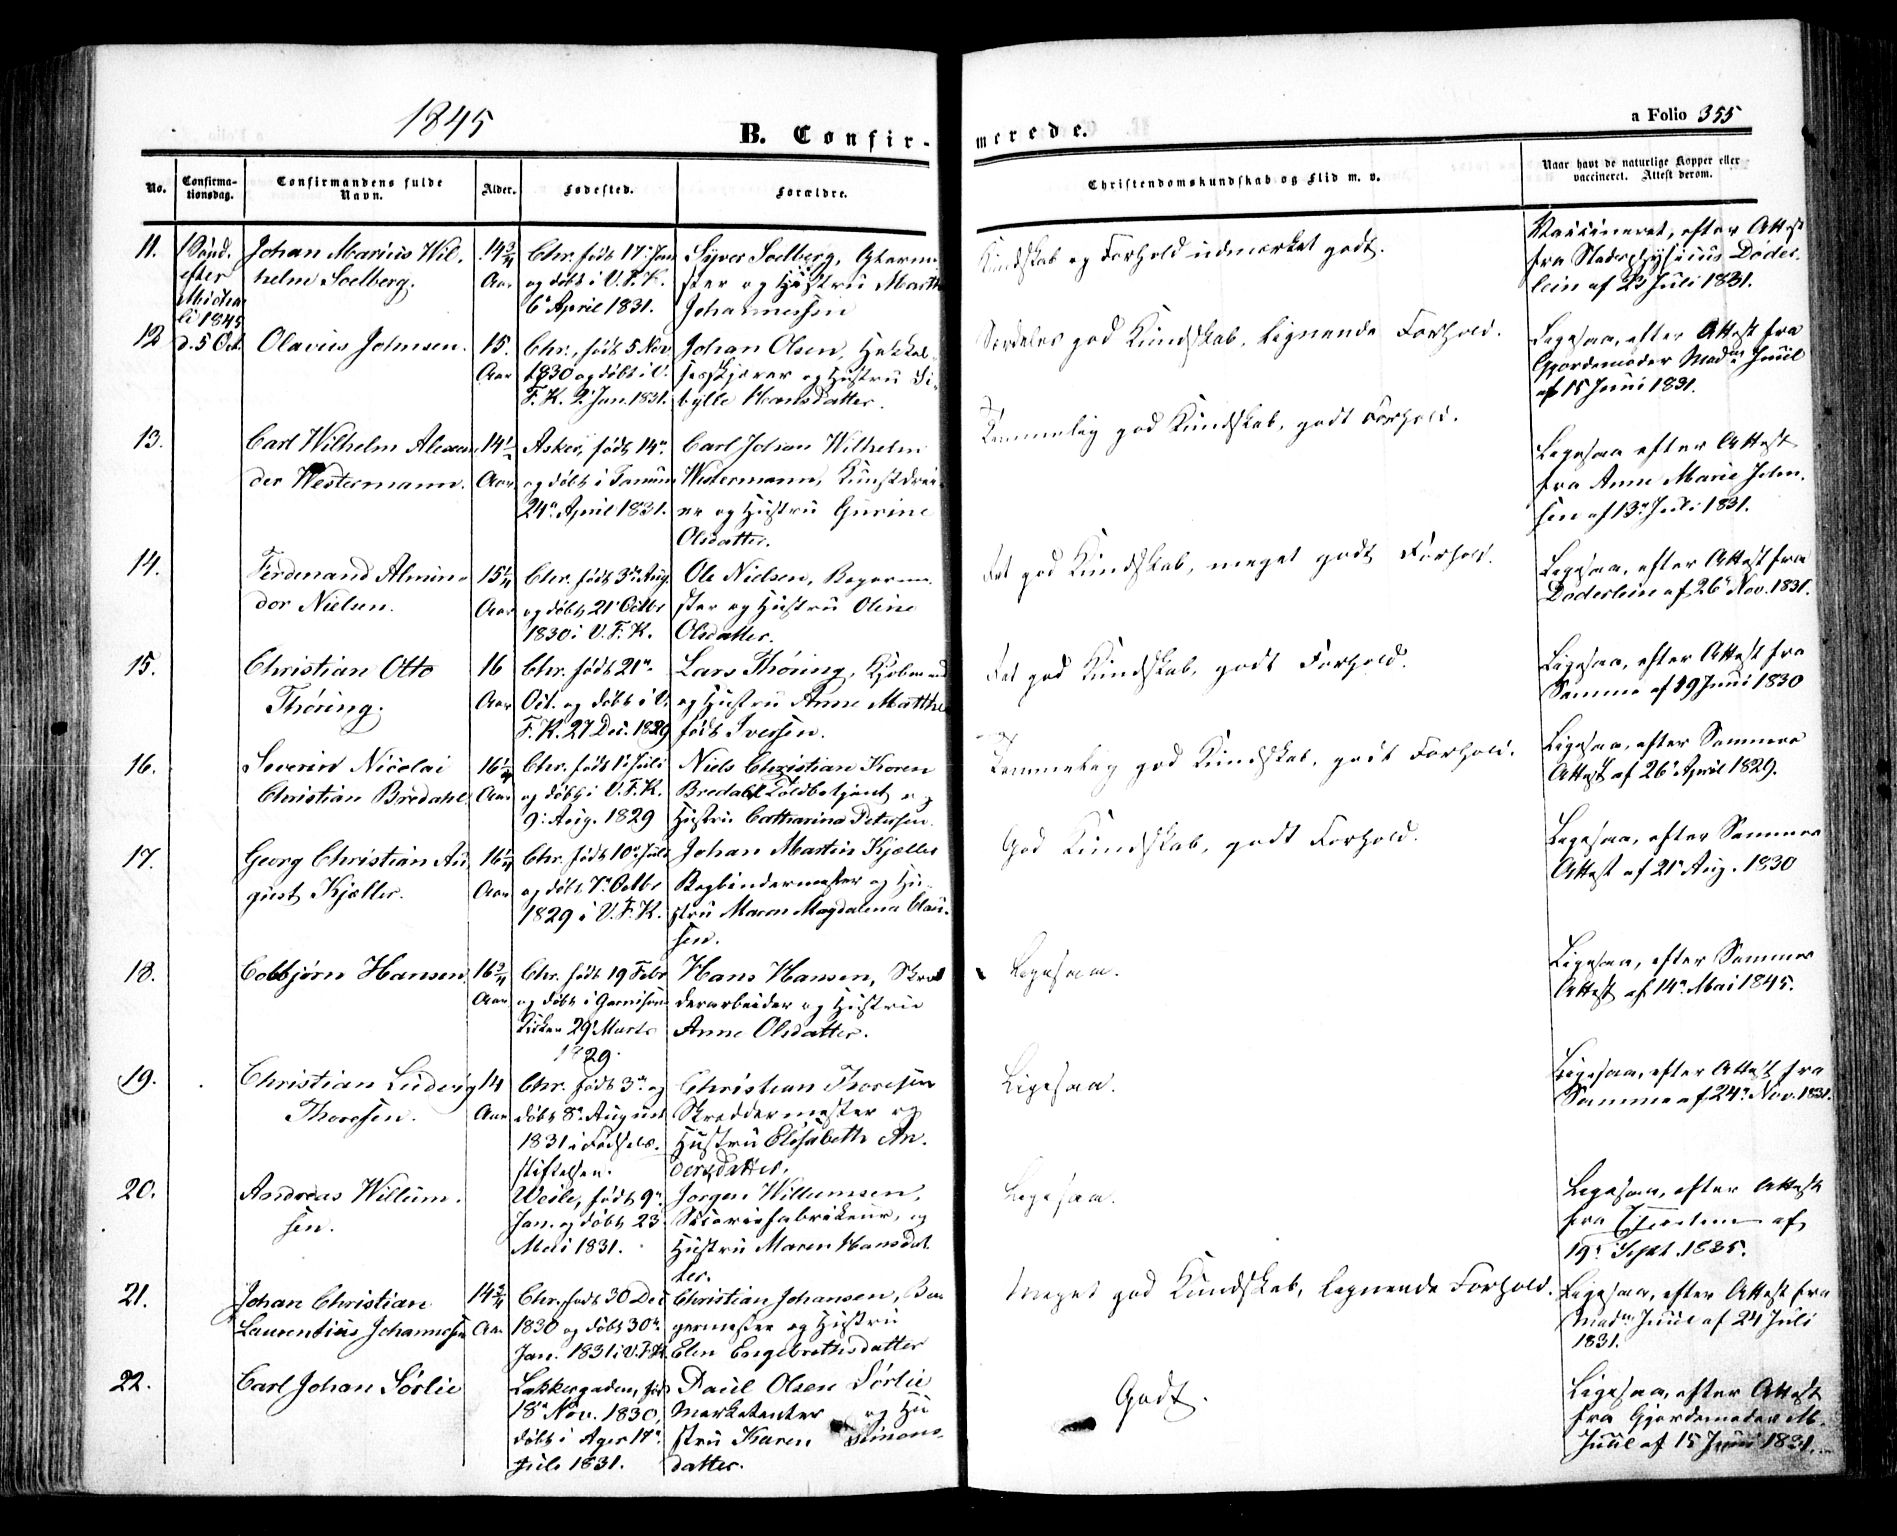 1845
B. Confir-
merede.
a Folio 355
No.
Confirma-
tionsdag.
Confirmandens fulde
Navn.
Alder.
Fødested.
Forældre.
Christendomskundskab og Flid m. v.
Naar havt de naturlige Kopper eller
vaccineret. Attest derom.
11.
1 Sønd.
efter
Michae
li 1845
d. 5 Oct.
Johan Marius Wil-
helm Soelberg.
14 3/4
Aar
Chr. født 17. Jan
og døbt i V. F. K.
6. April 1831.
Syver Soelberg,
ster og Hustru Marthe
Johannessen
Kundskab og Forhold udmærket godt.
Vaccineret, efter Attest
fra Stadsphysicus Døder-
lein af 23 Juli 1831.
12
Olavius Johnsen.
15.
Aar
Chr., født 5 Nov.
1830 og døbt i V.
F. K. 2. Jan. 1831.
Johan Olsen, Hakkel-
sesskjærer og Hustru Si-
bylle Hansdatter.
Særdeles god Kundskab, lignende Forhold.
Ligesaa, efter Attest fra
Gjordemoder Madm Juul
af 15 Juni 1831.
13.
Carl Wilhelm Alexan
der Westermann.
14 1/2
Aar
Asker, født 14n
og døbt i Tanum
24n April 1831.
Carl Johan Wilhelm
Westermann, Kunstdrei-
er og Hustru Gurine
Olsdatter.
Temmelig god Kundskab, godt Forhold.
Ligesaa efter Attest
fra Anne Marie John-
sen af 13n Juli 1831.
14.
Ferdinand Almin-
dor Nielsen.
15 1/4
Aar
Chr. født 3n Aug.
og døbt 21 Octbr
1830 i V. F. K.
Ole Nielsen, Bagerme-
ster og Hustru Oline
Olsdatter.
Ret god Kundskab, meget godt Forhold.
Ligesaa, efter Attest fra
Døderlein af 26 Nov. 1831.
15.
Christian Otto
Thöring.
16
Aar
Chr. født 21n
Oct. og døbt i V.
F. K. 27 Dec. 1829
Lars Thöring, Kjøbmand
og Hustru Anne Matthea
født Iversen.
Ret god Kundskab, godt Forhold.
Ligesaa, efter Attest fra
Samme af 19 Juni 1830
16.
Severin Nicolai
Christian Bredahl
16 1/4
Aar
Chr. født 1n Juli
og døbt i V. F. K.
9. Aug. 1829
Niels Christian Koren
Bredahl Toldbetjent og
Hustru Catharina Petersen.
Temmelig god Kundskab, godt Forhold.
Ligesaa, efter Sammes
Attest af 26 April 1829.
17.
Georg Christian Au
gust Kjæller.
16 1/4
Aar
Chr. født 10. Juli
og døbt 7n Octbr
1829 i V. F. K.
Johan Martin Kjæller
Bogbindermester og Hu-
stru Maren Magdalena Clau-
sen.
God Kundskab, godt Forhold.
Ligesaa, efter Sammes
Attest af 21 Aug. 1830
18.
Colbjørn Hansen.
16 3/4
Aar
Chr. født 19 Febr
og døbt i Garnisons
Kirken 29 Marts
1829.
Hans Hansen, Skræd
derarbeider og Hustru
Anne Olsdatter.
Ligesaa.
Ligesaa, efter Sammes
Attest af 14n Mai 1845.
19.
Christian Ludvig
Thoresen.
14
Aar
Chr. født 3n og
døbt 8n August
1831 i Fødsels-
stiftelsen.
Christian Thoresen
Skreddermester og
Hustru Elisabeth An-
dersdatter.
Ligesaa.
Ligesaa, efter Attest fra
Samme af 24n Nov. 1831.
20.
Andreas Willum-
sen.
Weile, født 9n
Jan. og døbt 23
Mai 1831.
Jørgen Willumsen,
og
Hustru Maren Hansdat
ter.
Ligesaa.
Ligesaa, efter Attest
fra af
19n Sept. 1835.
21.
Johan Christian
Laurentius Johannesen
14 3/4
Aar
Chr., født 30 Dec
1830 og døbt 30n
Jan. 1831 i V. F. K.
Christian Johansen, Bau
germester og Hustru
Elen Engebrethsdatter
Meget god Kundskab, lignende Forhold.
Ligesaa, efter Attest fra
Madm Juul af 24 Juli
1831.
22.
Carl Johan Sørlie
Lakkergaden, født
18n Nov. 1830,
døbt i Ager 17n
Juli 1831.
Paul Olsen Sørlie
Marketenter og Hu
stru Karen Simons-
datter.
Godt.
Ligesaa, efter Attest
fra Gjordemoder M.
Juul af 15 Juni 1831.